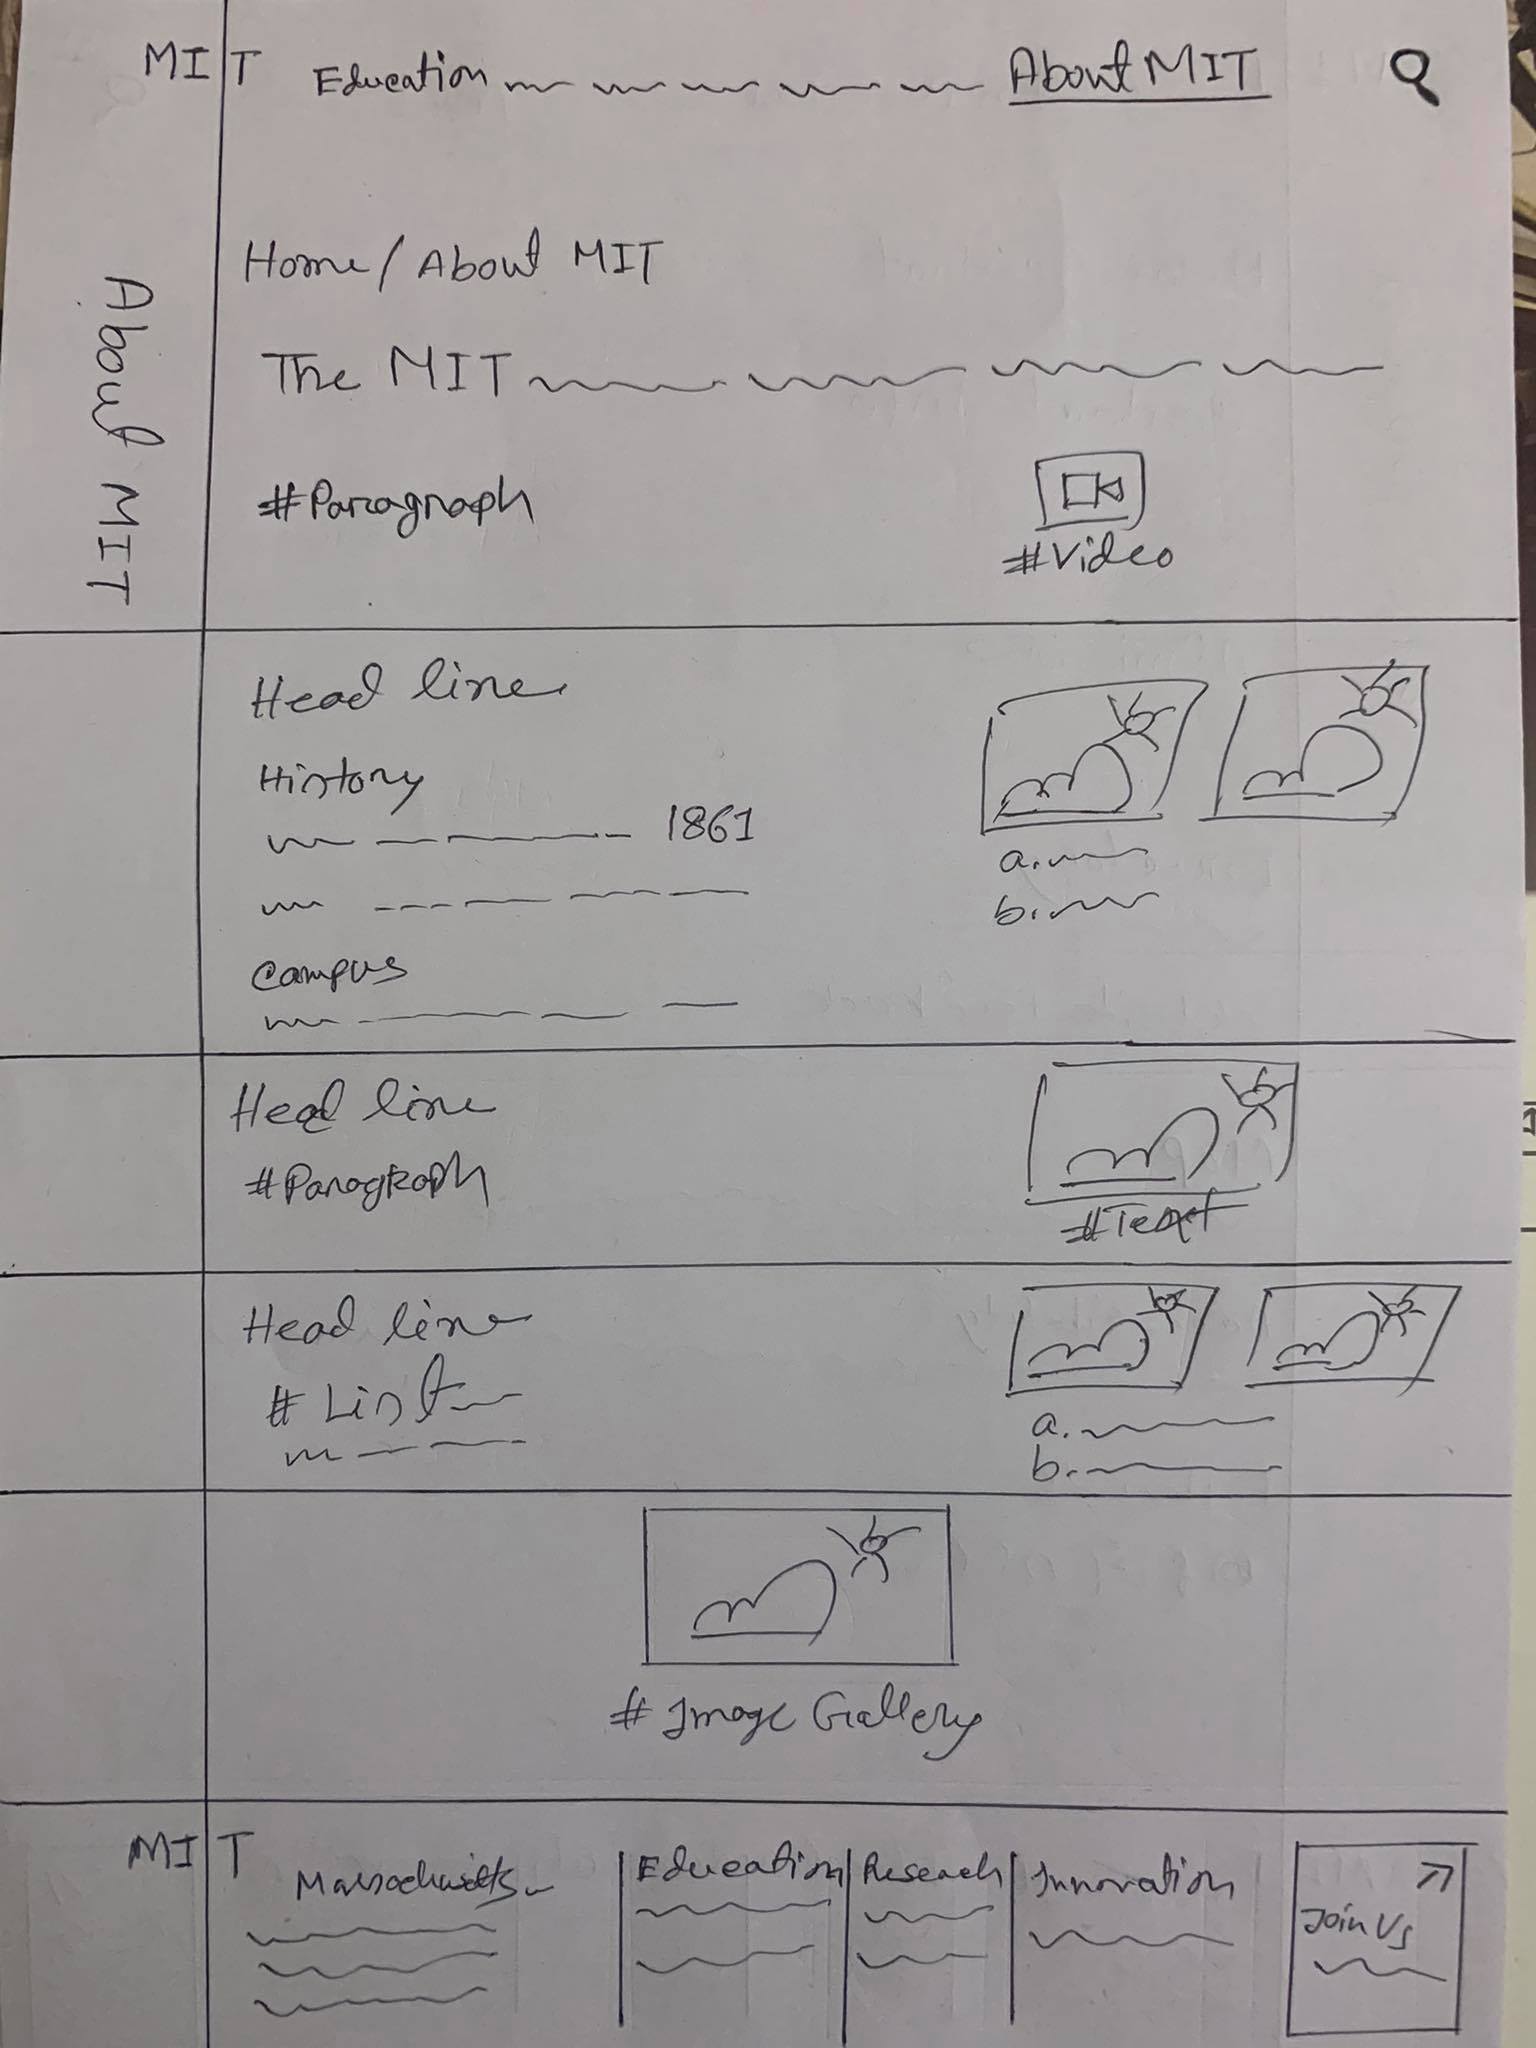 MIT Education About MIT
About MIT
Home/About MIT
The MIT
#Paragraph
#Video
Head line
History
1861
a.
b.
Campus
Head line
#Paragraph
#Text
Head line
# List
a.
b.
# Image Gallery
MIT
Massachusetts
Education
Research
Innovation
Join Us